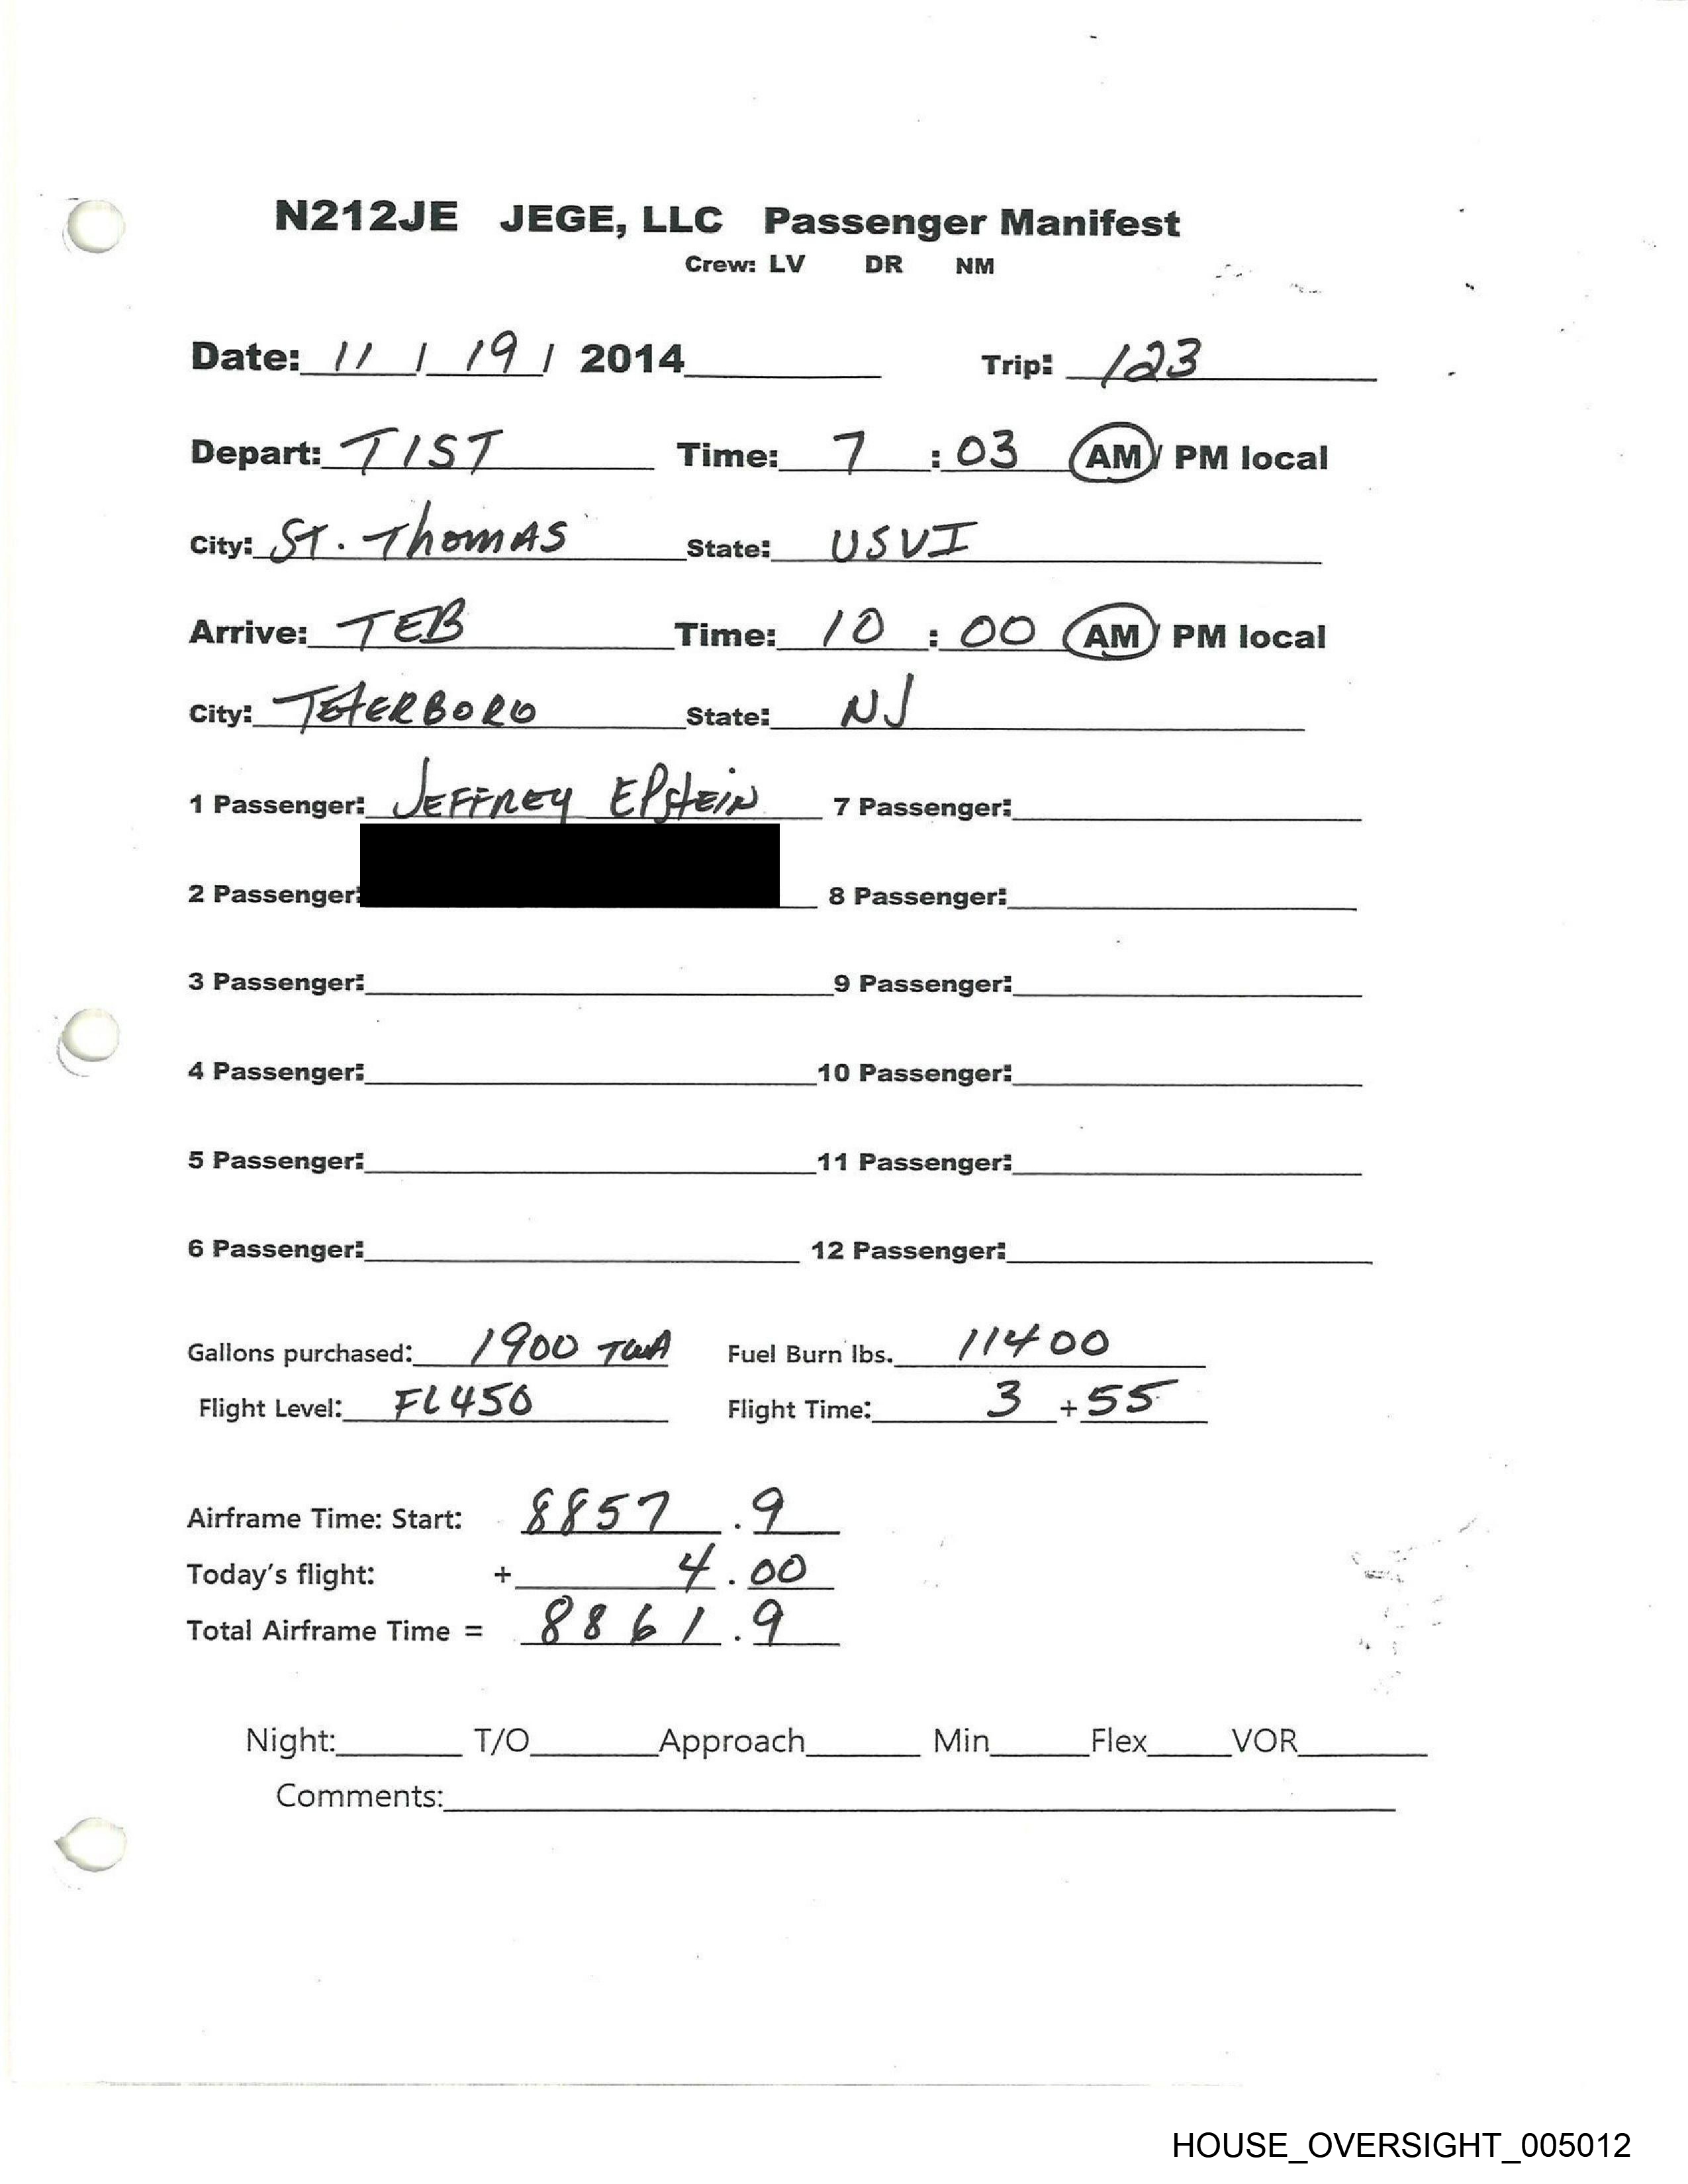 N212JE JEGE, LLC Passenger Manifest
Crew: LV DR NM
Date: 11 / 19 / 2014 Trip: 123
Depart: TIST Time: 7 : 03 AM / PM local
City: ST. Thomas State: USVI
Arrive: TEB Time: 10 : 00 AM / PM local
City: TETERBORO State: NJ
1 Passenger: JEFFREY EPstEiN 7 Passenger:
2 Passenger: 8 Passenger:
3 Passenger: 9 Passenger:
4 Passenger: 10 Passenger:
5 Passenger: 11 Passenger:
6 Passenger: 12 Passenger:
Gallons purchased: 1900 Fuel Burn lbs. 11400
Flight Level: FL450 Flight Time: 3 + 55
Airframe Time: Start: 8857 . 9
Today's flight: + 4 . 00
Total Airframe Time = 8861 . 9
Night: T/O Approach Min Flex VOR
Comments:
HOUSE_OVERSIGHT_005012